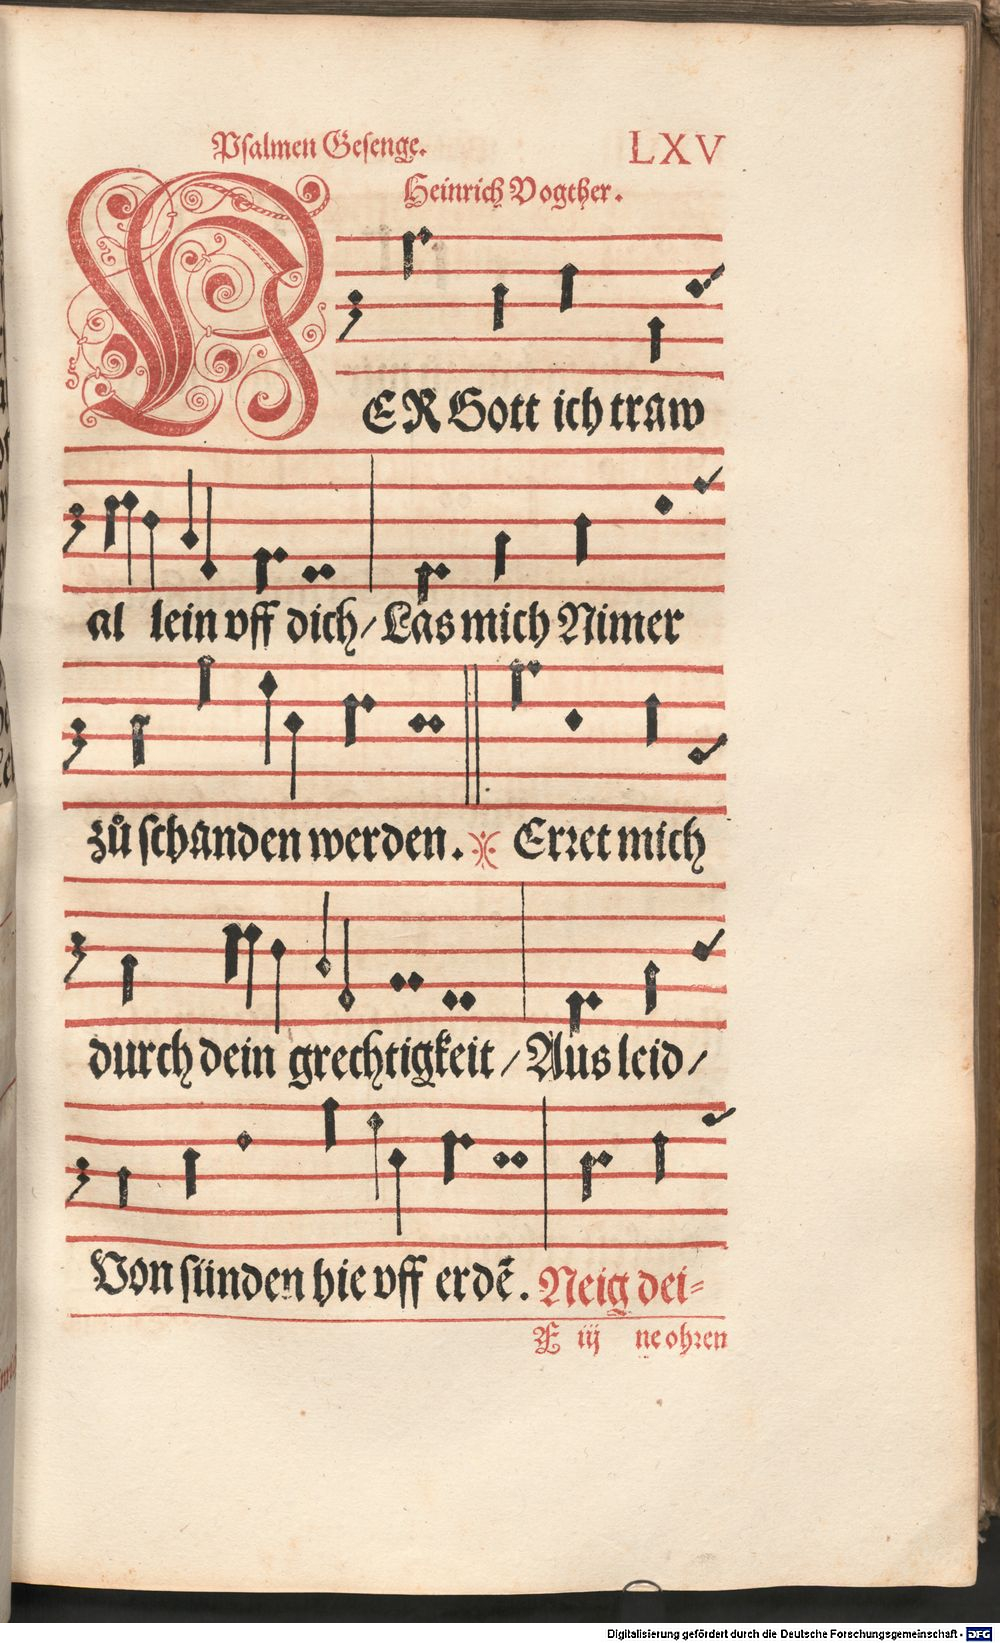 Psalmen Gesenge. LXV
Heinrich Vogther.
HER Gott ich traw
al lein vff dich/ Las mich Nimer
zů schanden werden. Erret mich
durch dein grechtigkeit / Aus leid /
Von sünden hie vff erdē. Neig dei⸗
Æ iij ne ohren
Digitalisierung gefördert durch die Deutsche Forschungsgemeinschaft - DFG